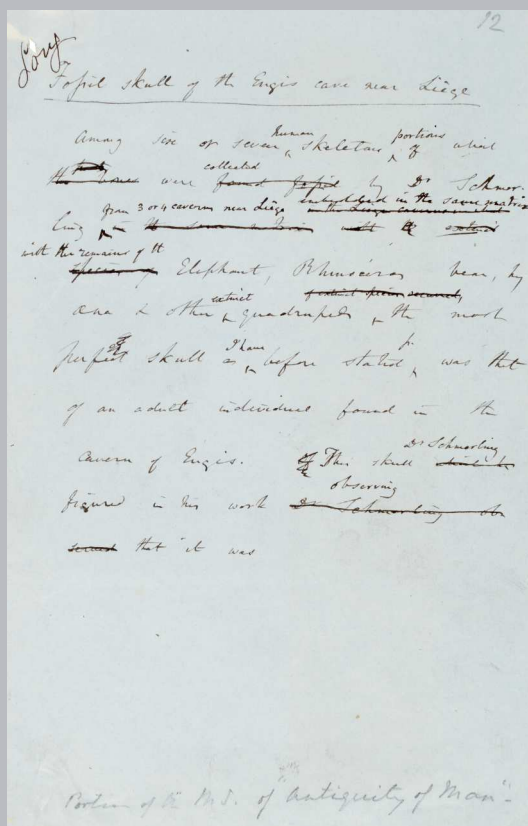 12
Fossil skull of the Engis cave near Liège
Among six or seven human skeletons, portions of which
the bones were collected found fossil by Dr Schmer-
ling from 3 or 4 caverns near Liège embedded in the same matrix
with the remains of the
species of Elephant, Rhinoceros bear, hy
ena & other extinct quadrupeds of extinct species occurred, the most
perfect skull as I have before stated p. was that
of an adult individual found in the
Cavern of Engis. This skull Dr Schmerling
figured in his work observing Dr Schmerling ob
served that "it was
Portion of the M.S. of "Antiquity of Man"-